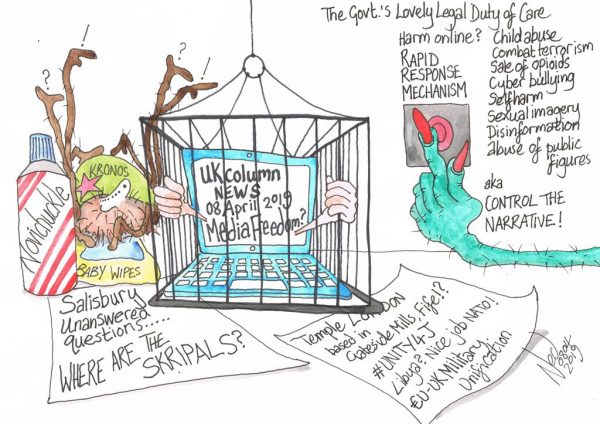 The Govt.'s Lovely Legal Duty of Care
Harm online?
RAPID
RESPONSE
MECHANISM
Child abuse
Combat terrorism
Sale of opioids
Cyber bullying
Selfharm
Sexual imagery
Disinformation
abuse of public
figures
aka
CONTROL THE
NARRATIVE!
? !
? !
Novichuckle
KRONOS
BABY WIPES
UKcolumn
NEWS
08 April 2019
Media Freedom?
Salisbury
Unanswered
questions.....
WHERE ARE THE
SKRIPALS?
Temple LONDON
based in
Gateside Mills, Fife!?
#UNITY4J
Libya? Nice job NATO!
€U-UK Military
Unification
2019